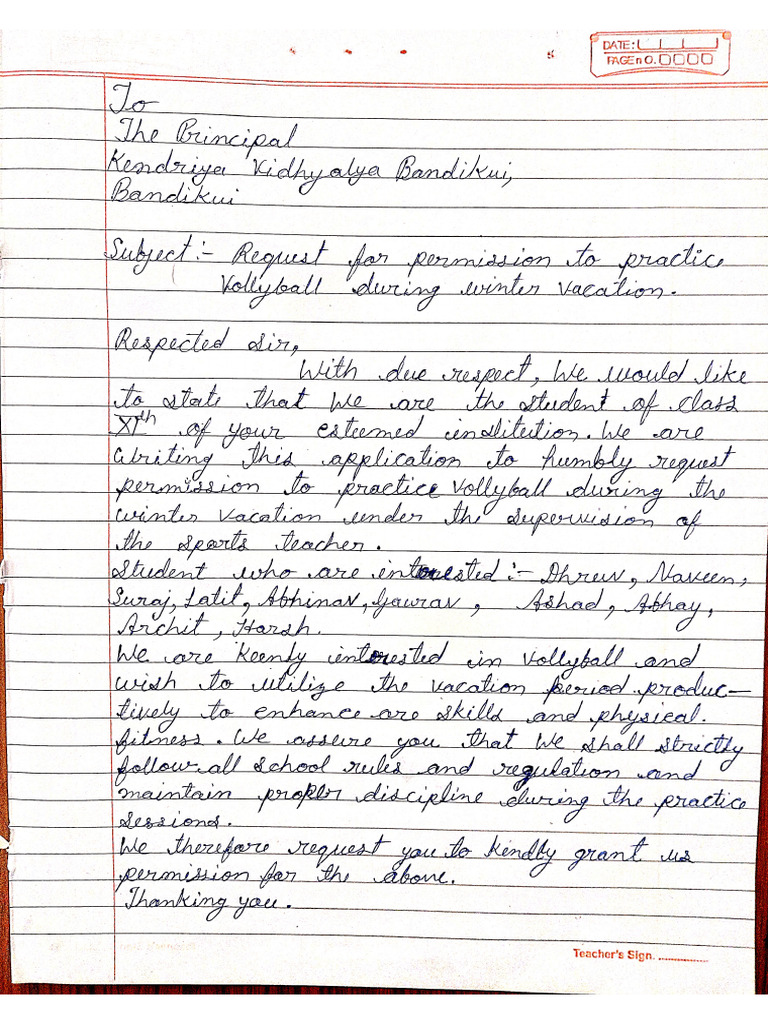 DATE:
PAGE NO.
To
The Principal
Kendriya Vidhyalya Bandikui,
Bandikui
Subject:- Request for permission to practice
Vollyball during winter vacation.
Respected Sir,
With due respect, We would like
to state that We are the student of class
XIth of your esteemed institution. We are
writing this application to humbly request
permission to practice vollyball during the
winter vacation under the supervision of
the sports teacher.
Student who are interested :- Dhruv, Naveen,
Suraj, Lalit, Abhinav, Gaurav, Ashad, Abhay,
Archit, Harsh.
We are keenly interested in vollyball and
wish to utilize the vacation period produc-
tively to enhance are skills and physical.
fitness. We assure you that We shall strictly
follow all school rules and regulation and
maintain proper discipline during the practice
sessions.
We therefore request you to kindly grant us
permission for the above.
Thanking you.
Teacher's Sign. ................